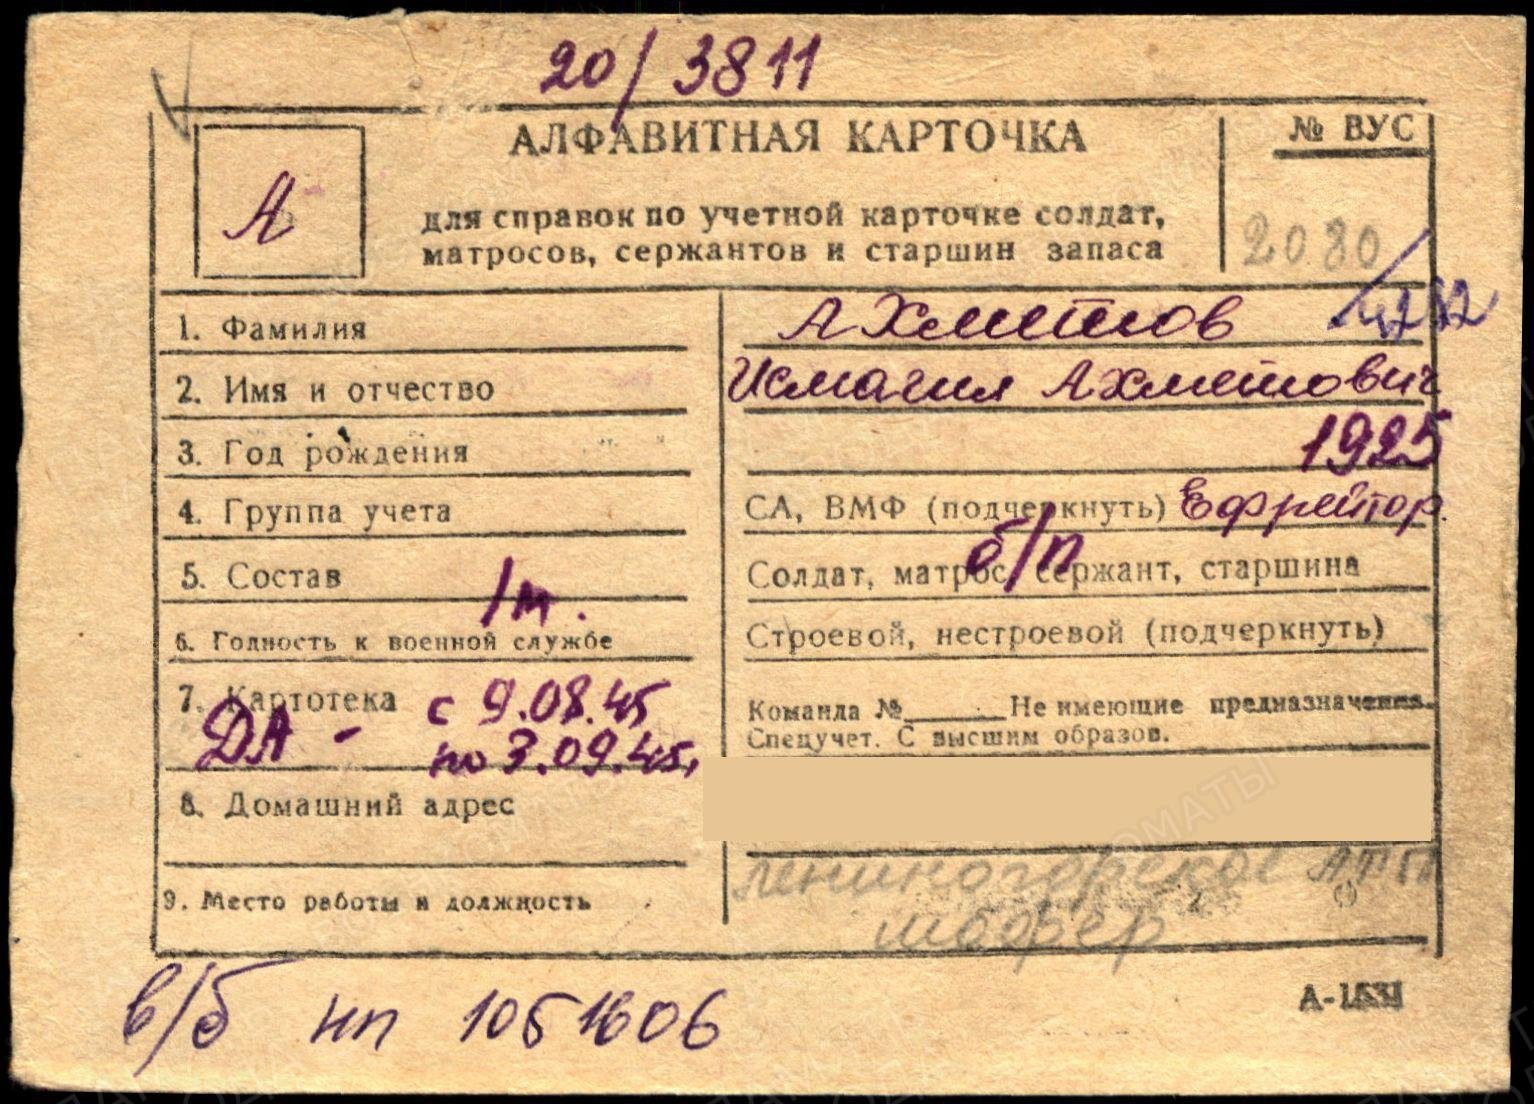 20/3811
АЛФАВИТНАЯ КАРТОЧКА
№ ВУС
А
для справок по учетной карточке солдат,
матросов, сержантов и старшин запаса
2080
1. Фамилия
Ахметов
2. Имя и отчество
Исмагил Ахметович
3. Год рождения
1925
4. Группа учета
СА, ВМФ (подчеркнуть) Ефрейтор.
5. Состав
Солдат, матрос, сержант, старшина
б/п
1м.
6. Годность к военной службе
Строевой, нестроевой (подчеркнуть)
7. Картотека с 9.08.45
ДА - по 3.09.45.
Команда № Не имеющие предназначения.
Спецучет. С высшим образов.
8. Домашний адрес
9. Место работы и должность
Лениногорское АТП
2
шофер
в/б НП 1051606